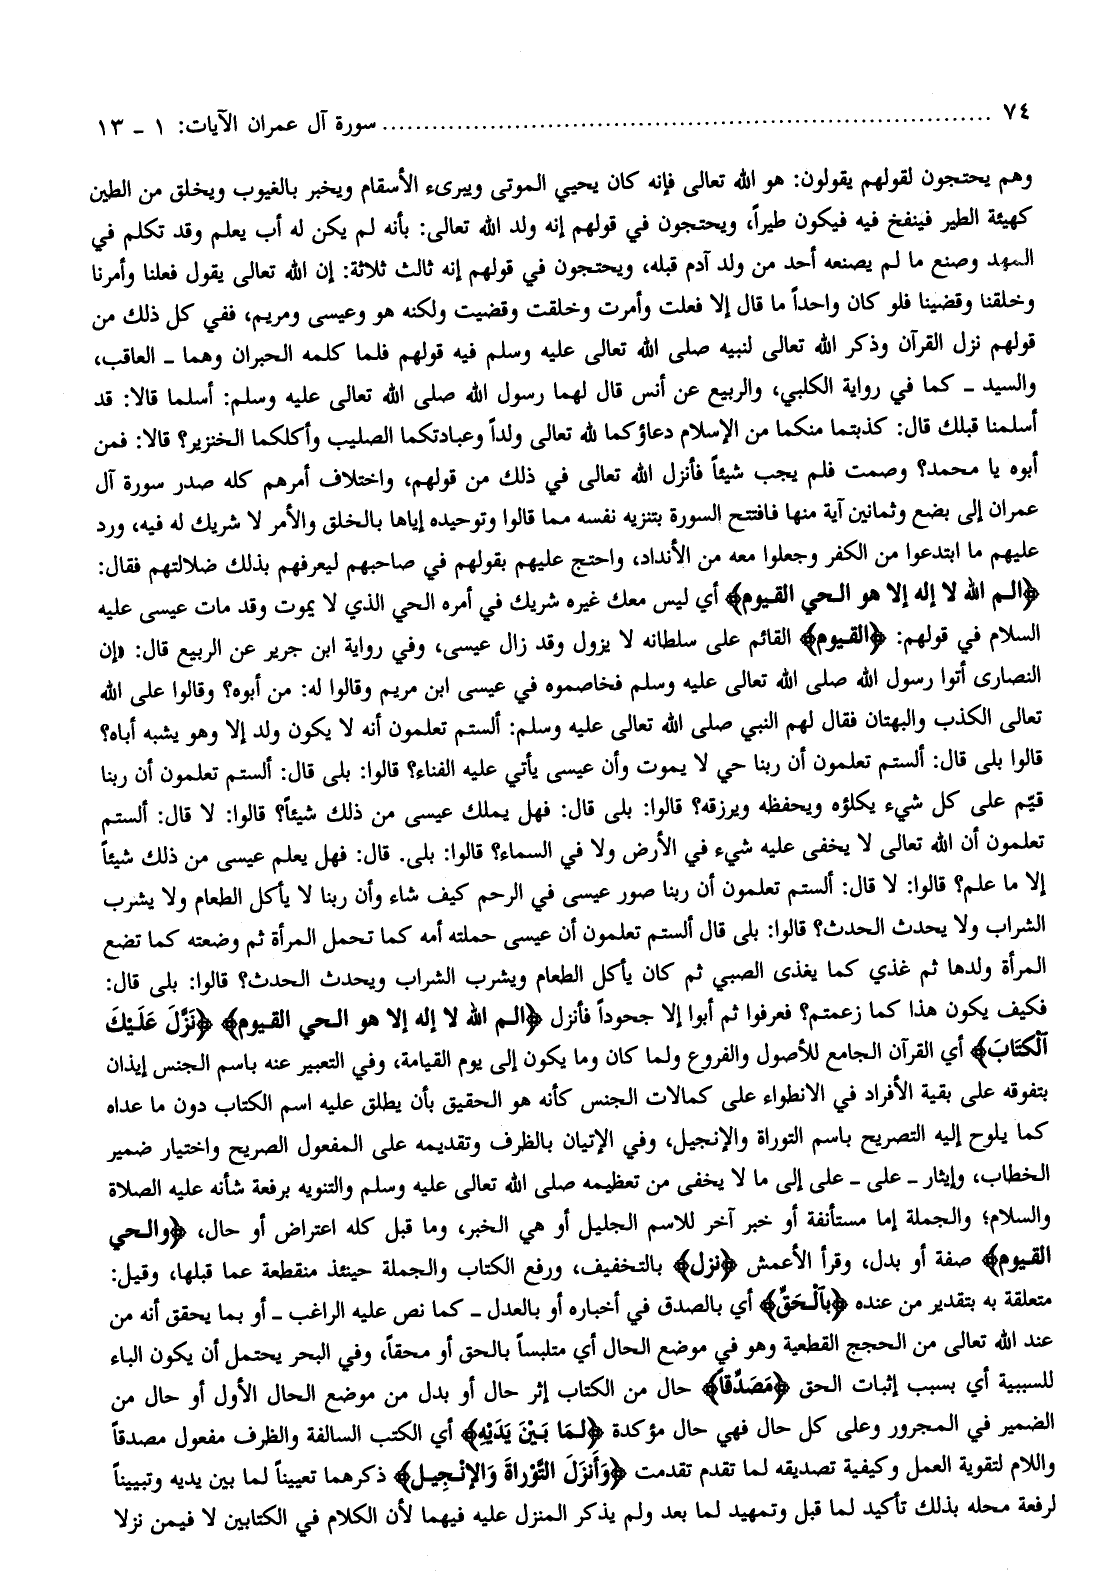 ٧٤ ........ سورة آل عمران الآيات: ١ ـ ١٣
وهم يحتجون لقولهم يقولون: هو الله تعالى فإنه كان يحيي الموتى ويبرىء الأسقام ويخبر بالغيوب ويخلق من الطين
كهيئة الطير فينفخ فيه فيكون طيراً، ويحتجون في قولهم إنه ولد الله تعالى: بأنه لم يكن له أب يعلم وقد تكلم في
المهد وصنع ما لم يصنعه أحد من ولد آدم قبله، ويحتجون في قولهم إنه ثالث ثلاثة: إن الله تعالى يقول فعلنا وأمرنا
وخلقنا وقضينا فلو كان واحداً ما قال إلا فعلت وأمرت وخلقت وقضيت ولكنه هو وعيسى ومريم، ففي كل ذلك من
قولهم نزل القرآن وذكر الله تعالى لنبيه صلى الله تعالى عليه وسلم فيه قولهم فلما كلمه الحبران وهما ـ العاقب،
والسيد ـ كما في رواية الكلبي، والربيع عن أنس قال لهما رسول الله صلى الله تعالى عليه وسلم: أسلما قالا: قد
أسلمنا قبلك قال: كذبتما منكما من الإسلام دعاؤكما لله تعالى ولداً وعبادتكما الصليب وأكلكما الخنزير؟ قالا: فمن
أبوه يا محمد؟ وصمت فلم يجب شيئاً فأنزل الله تعالى في ذلك من قولهم، واختلاف أمرهم كله صدر سورة آل
عمران إلى بضع وثمانين آية منها فافتتح السورة بتنزيه نفسه مما قالوا وتوحيده إياها بالخلق والأمر لا شريك له فيه، ورد
عليهم ما ابتدعوا من الكفر وجعلوا معه من الأنداد، واحتج عليهم بقولهم في صاحبهم ليعرفهم بذلك ضلالتهم فقال:
﴿الـم الله لا إله إلا هو الـحي القيوم﴾ أي ليس معك غيره شريك في أمره الحي الذي لا يموت وقد مات عيسى عليه
السلام في قولهم: ﴿القيوم﴾ القائم على سلطانه لا يزول وقد زال عيسى، وفي رواية ابن جرير عن الربيع قال: «إن
النصارى أتوا رسول الله صلى الله تعالى عليه وسلم فخاصموه في عيسى ابن مريم وقالوا له: من أبوه؟ وقالوا على الله
تعالى الكذب والبهتان فقال لهم النبي صلى الله تعالى عليه وسلم: ألستم تعلمون أنه لا يكون ولد إلا وهو يشبه أباه؟
قالوا بلى قال: ألستم تعلمون أن ربنا حي لا يموت وأن عيسى يأتي عليه الفناء؟ قالوا: بلى قال: ألستم تعلمون أن ربنا
قيّم على كل شيء يكلؤه ويحفظه ويرزقه؟ قالوا: بلى قال: فهل يملك عيسى من ذلك شيئاً؟ قالوا: لا قال: ألستم
تعلمون أن الله تعالى لا يخفى عليه شيء في الأرض ولا في السماء؟ قالوا: بلى. قال: فهل يعلم عيسى من ذلك شيئاً
إلا ما علم؟ قالوا: لا قال: ألستم تعلمون أن ربنا صور عيسى في الرحم كيف شاء وأن ربنا لا يأكل الطعام ولا يشرب
الشراب ولا يحدث الحدث؟ قالوا: بلى قال ألستم تعلمون أن عيسى حملته أمه كما تحمل المرأة ثم وضعته كما تضع
المرأة ولدها ثم غذي كما يغذى الصبي ثم كان يأكل الطعام ويشرب الشراب ويحدث الحدث؟ قالوا: بلى قال:
فكيف يكون هذا كما زعمتم؟ فعرفوا ثم أبوا إلا جحوداً فأنزل ﴿الـم الله لا إله إلا هو الـحي القيوم﴾ ﴿نَزَّلَ عَلَيْكَ
ٱلْكِتَابَ﴾ أي القرآن الجامع للأصول والفروع ولما كان وما يكون إلى يوم القيامة، وفي التعبير عنه باسم الجنس إيذان
بتفوقه على بقية الأفراد في الانطواء على كمالات الجنس كأنه هو الحقيق بأن يطلق عليه اسم الكتاب دون ما عداه
كما يلوح إليه التصريح باسم التوراة والإنجيل، وفي الإتيان بالظرف وتقديمه على المفعول الصريح واختيار ضمير
الخطاب، وإيثار ـ على ـ على إلى ما لا يخفى من تعظيمه صلى الله تعالى عليه وسلم والتنويه برفعة شأنه عليه الصلاة
والسلام؛ والجملة إما مستأنفة أو خبر آخر للاسم الجليل أو هي الخبر، وما قبل كله اعتراض أو حال، ﴿والـحي
القيوم﴾ صفة أو بدل، وقرأ الأعمش ﴿نزل﴾ بالتخفيف، ورفع الكتاب والجملة حينئذ منقطعة عما قبلها، وقيل:
متعلقة به بتقدير من عنده ﴿بٱلْحَقِّ﴾ أي بالصدق في أخباره أو بالعدل ـ كما نص عليه الراغب ـ أو بما يحقق أنه من
عند الله تعالى من الحجج القطعية وهو في موضع الحال أي متلبساً بالحق أو محقاً، وفي البحر يحتمل أن يكون الباء
للسببية أي بسبب إثبات الحق ﴿مَصَدِّقاً﴾ حال من الكتاب إثر حال أو بدل من موضع الحال الأول أو حال من
الضمير في المجرور وعلى كل حال فهي حال مؤكدة ﴿لـمَا بَيْنَ يَدَيْهِ﴾ أي الكتب السالفة والظرف مفعول مصدقاً
واللام لتقوية العمل وكيفية تصديقه لما تقدم تقدمت ﴿وَأَنزَلَ التَّوْراةَ وَالإنْجيـل﴾ ذكرهما تعييناً لما بين يديه وتبييناً
لرفعة محله بذلك تأكيد لما قبل وتمهيد لما بعد ولم يذكر المنزل عليه فيهما لأن الكلام في الكتابين لا فيمن نزلا